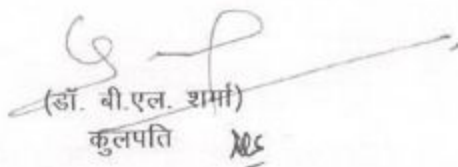 (डॉ. बी.एल. शर्मा)
कुलपति